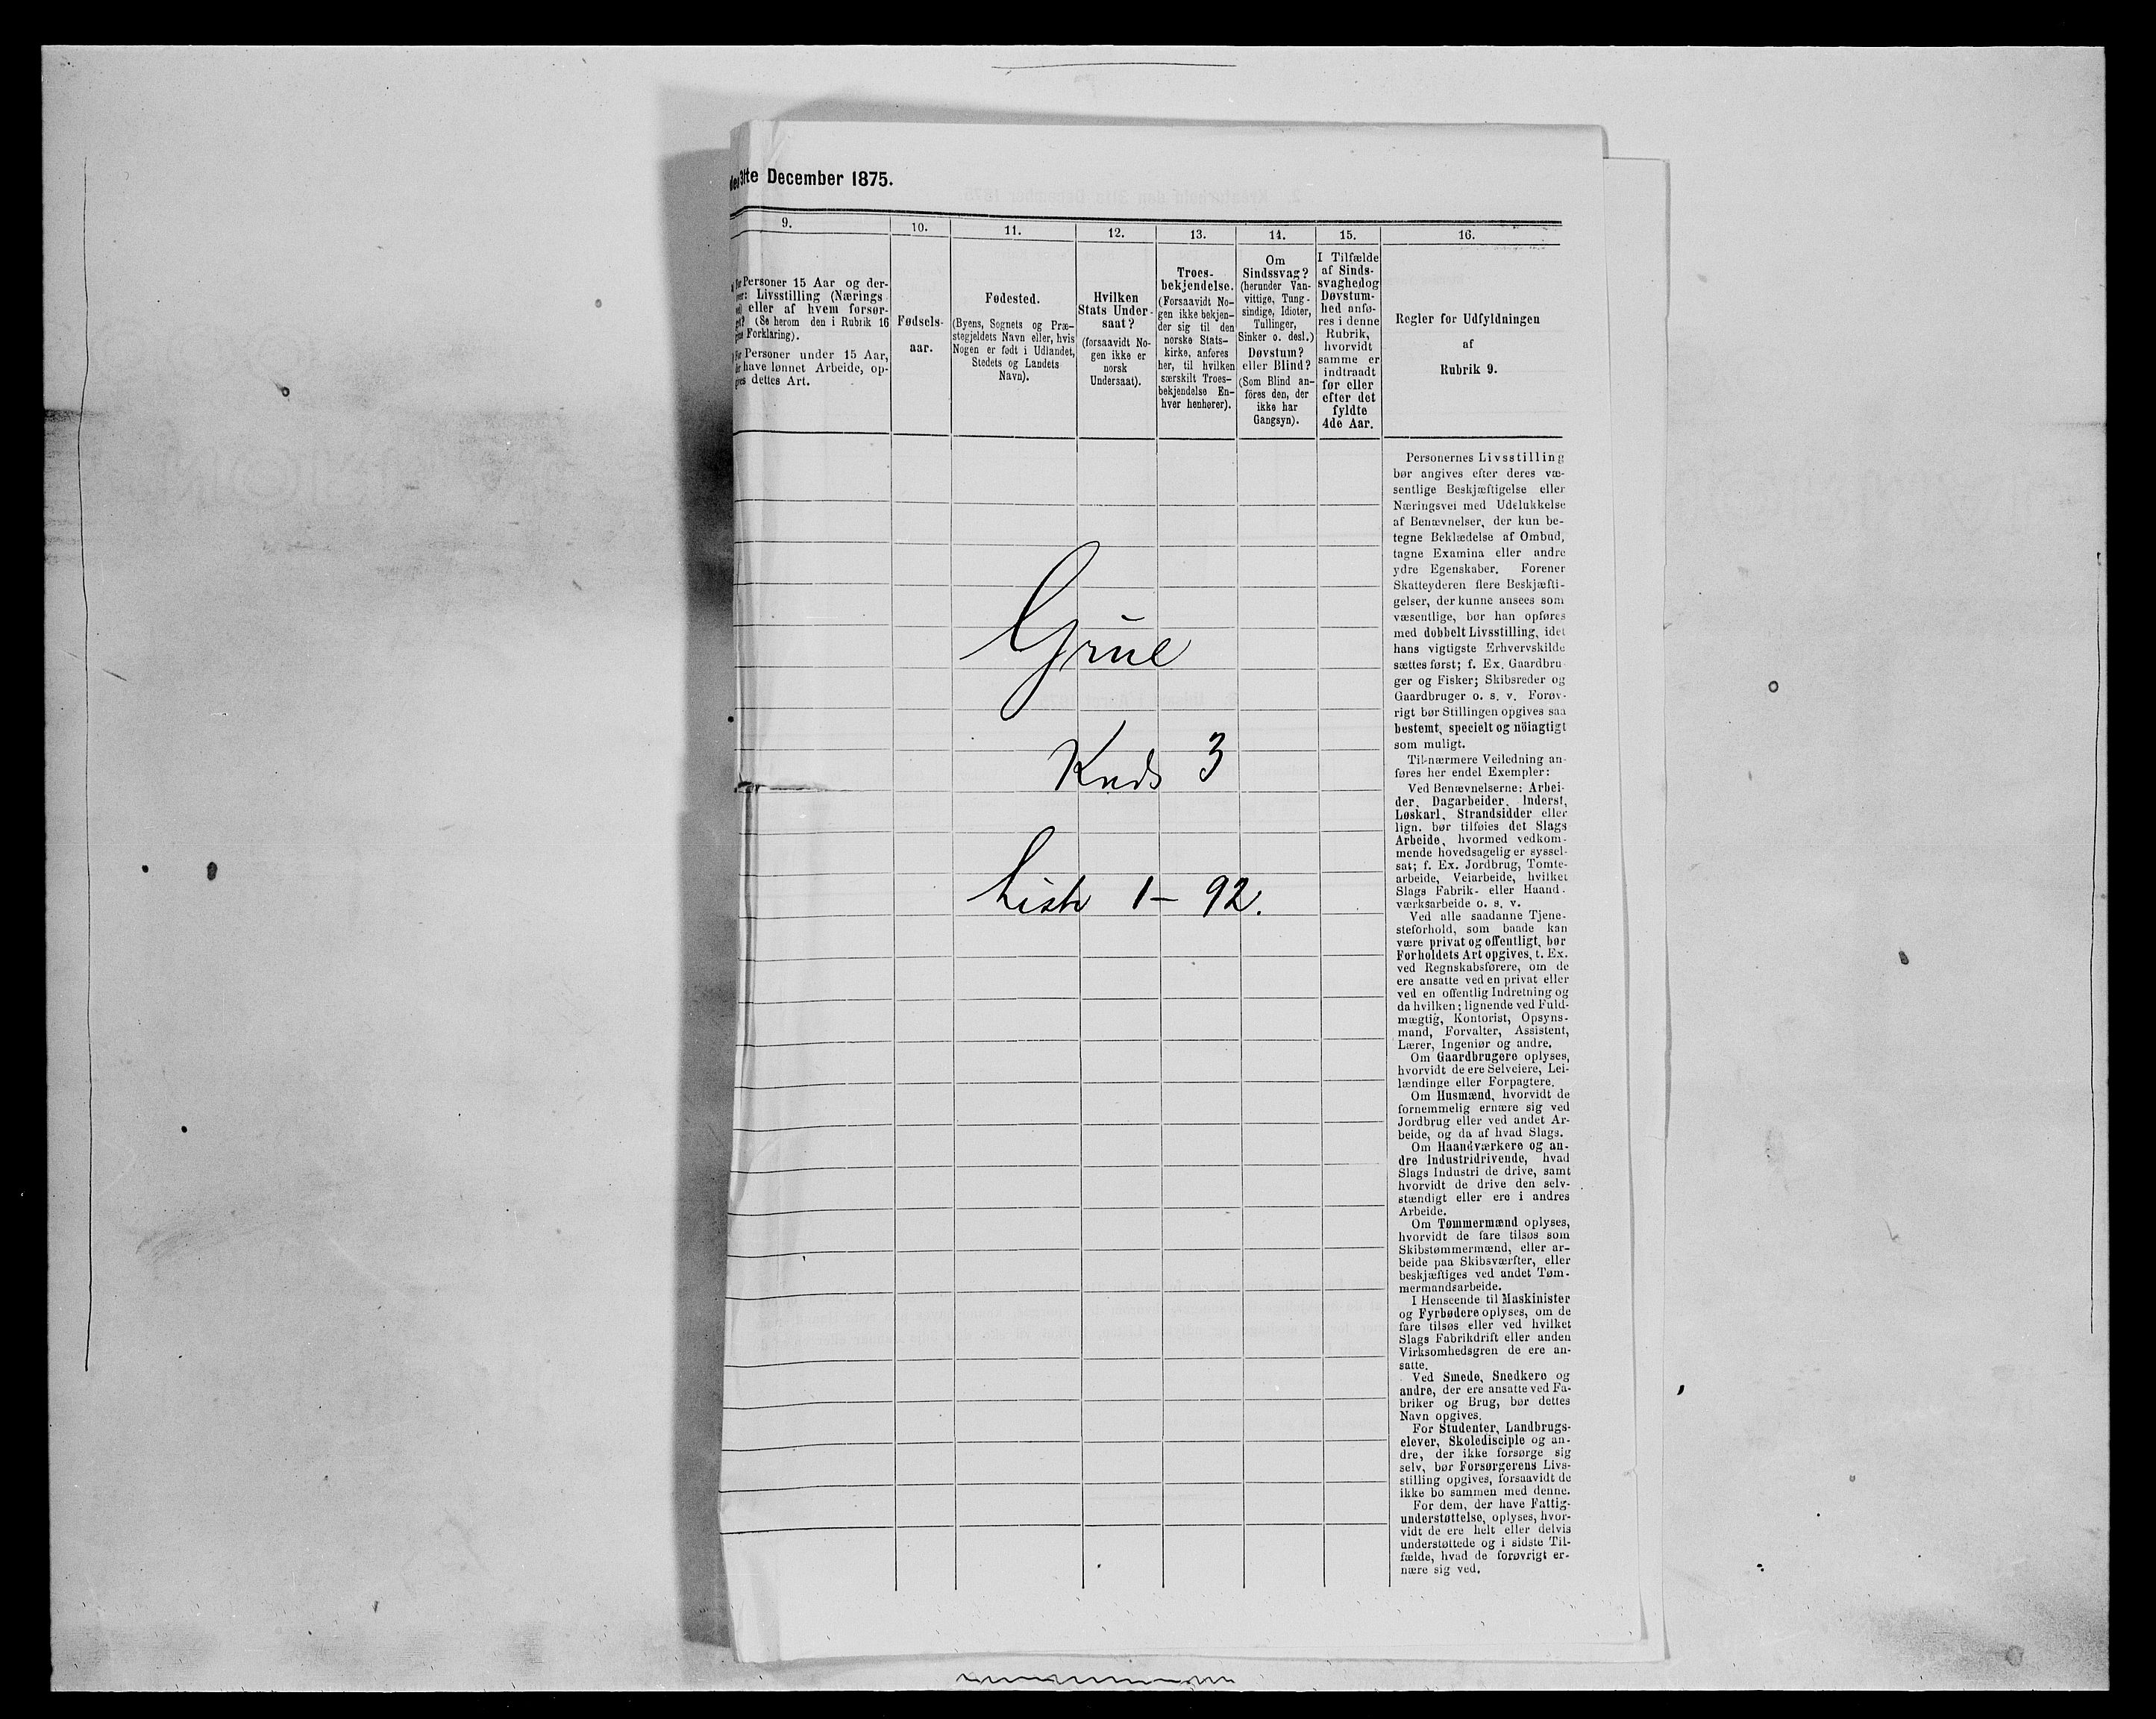 den 31te December 1875.
9.
10.
11.
12.
13.
14.
15.
16.
Personer 15 Aar og der-
Livsstilling (Nærings
eller af hvem forsør-
(Se herom den i Rubrik 16
Forklaring).
Personer under 15 Aar,
have lønnet Arbeide, op-
dettes Art.
Fødsels-
aar.
Fødested.
(Byens, Sognets og Præ-
stegjeldets Navn eller, hvis
Nogen er født i Udlandet,
Stedets og Landets
Navn).
Hvilken
Stats Under-
saat?
(forsaavidt No-
gen ikke er
norsk
Undersaat).
Troes-
bekjendelse.
(Forsaavidt No-
gen ikke bekjen-
der sig til den
norske Stats-
kirke, anføres
her, til hvilken
særskilt Troes-
bekjendelse En-
hver henhører).
Om
Sindssvag?
(herunder Van-
vittige, Tung-
sindige, Idioter,
Tullinger,
Sinker o. desl.)
Døvstum?
eller Blind?
(Som Blind an-
föres den, der
ikke har
Gangsyn).
I Tilfælde
af Sinds-
svaghed og
Døvstum-
hed anfø-
res i denne
Rubrik,
hvorvidt
samme er
indtraadt
før eller
efter det
fyldte
4de Aar.
Regler for Udfyldningen
af
Rubrik 9.
Personernes Livsstilling
bør angives efter deres væ-
sentlige Beskjæftigelse eller
Næringsvei med Udelukkelse
af Benævnelser, der kun be-
tegne Beklædelse af Ombud,
tagne Examina eller andre
ydre Egenskaber. Forener
Skatteyderen flere Beskjæfti-
gelser, der kunne ansees som
væsentlige, bør han opføres
med dobbelt Livsstilling, idet
hans vigtigste Erhvervskilde
sættes først; f. Ex. Gaardbru-
ger og Fisker; Skibsreder og
Gaardbruger o. s. v. Forøv-
rigt bør Stillingen opgives saa
bestemt, specielt og nöiagtigt
som muligt.
Til nærmere Veiledning an-
føres her endel Exempler:
Ved Benævnelserne: Arbei-
der, Dagarbeider, Inderst,
Løskarl, Strandsidder eller
lign. bør tilføies det Slags
Arbeide, hvormed vedkom-
mende hovedsagelig er syssel-
sat; f. Ex. Jordbrug, Tomte-
arbeide, Veiarbeide, hvilket
Slags Fabrik- eller Haand-
værksarbeide o. s. v.
Ved alle saadanne Tjene-
steforhold, som baade kan
være privat og offentligt, bør
Forholdets Art opgives, t. Ex.
ved Regnskabsførere, om de
ere ansatte ved en privat eller
ved en offentlig Indretning og
da hvilken; lignende ved Fuld-
mægtig, Kontorist, Opsyns-
mand, Forvalter, Assistent,
Lærer, Ingeniør og andre.
Om Gaardbrugere oplyses,
hvorvidt de ere Selveiere, Lei-
lændinge eller Forpagtere.
Om Husmænd, hvorvidt de
fornemmelig ernære sig ved
Jordbrug eller ved andet Ar-
beide, og da af hvad Slags.
Om Haandværkere og an-
dre Industridrivende, hvad
Slags Industri de drive, samt
hvorvidt de drive den selv-
stændigt eller ere i andres
Arbeide.
Om Tømmermænd oplyses,
hvorvidt de fare tilsøs som
Skibstømmermænd, eller ar-
beide paa Skibsværfter, eller
beskjæftiges ved andet Tøm-
mermandsarbeide.
I Henseende til Maskinister
og Fyrbødere oplyses, om de
fare tilsøs eller ved hvilket
Slags Fabrikdrift eller anden
Virksomhedsgren de ere an-
satte.
Ved Smede, Snedkere og
andre, der ere ansatte ved Fa-
briker og Brug, bør dettes
Navn opgives.
For Studenter, Landbrugs-
elever, Skoledisciple og an-
dre, der ikke forsørge sig
selv, bør Forsørgerens Livs-
stilling opgives, forsaavidt de
ikke bo sammen med denne.
For dem, der have Fattig-
understøttelse, oplyses, hvor-
vidt de ere helt eller delvis
understøttede og i sidste Til-
fælde, hvad de forøvrigt er-
nære sig ved.
Grue
Kreds 3
Liste 1 - 92.